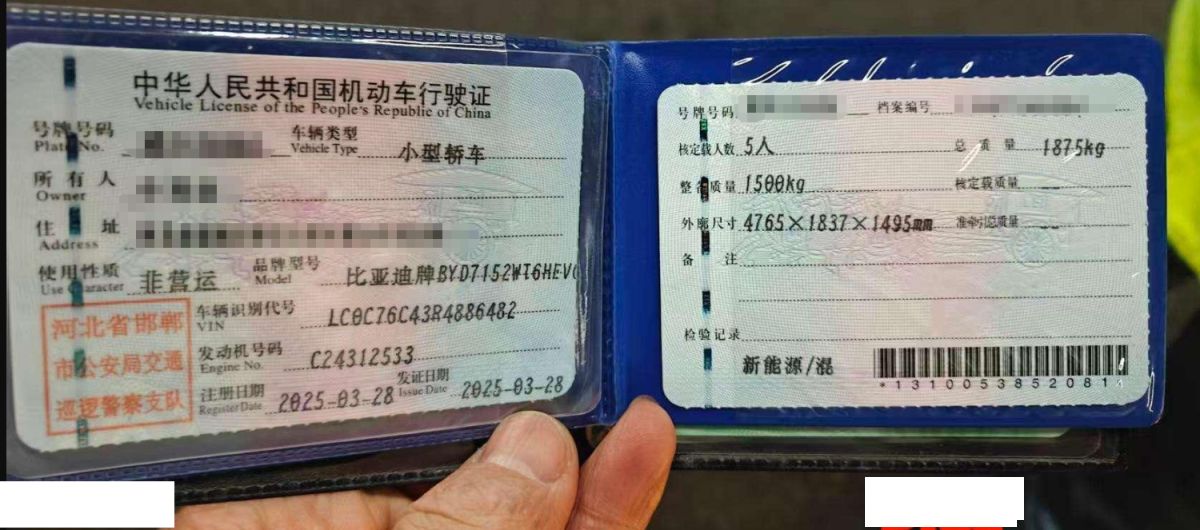 中华人民共和国机动车行驶证
Vehicle License of the People's Republic of China
号牌号码
Plate No.
车辆类型
Vehicle Type
小型轿车
所有人
Owner
住址
Address
使用性质
Use Character
非营运
品牌型号
Model
比亚迪牌BYD7152WT6HEV
河北省邯郸
市公安局交通
巡逻警察支队
车辆识别代号
VIN
LC0C76C43R4886482
发动机号码
Engine No.
C24312533
注册日期
Register Date
2025-03-28
发证日期
Issue Date
2025-03-28
号牌号码
档案编号
核定载人数 5人
总质量 1875kg
整备质量 1500kg
核定载质量 --
外廓尺寸 4765×1837×1495mm
准牵引总质量 --
备注
检验记录
新能源/混
*1310053852081